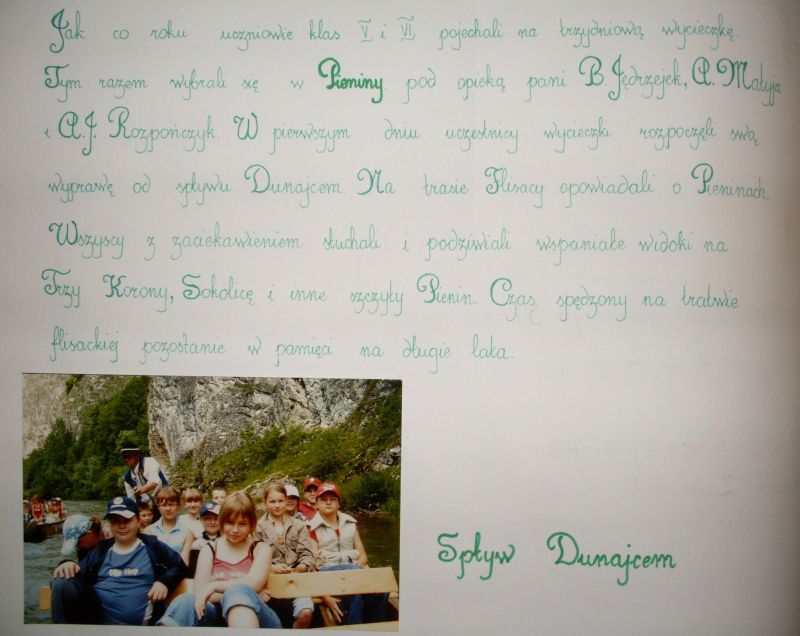 Jak co roku uczniowie klas V i VI pojechali na trzydniową wycieczkę.
Tym razem wybrali się w Pieniny pod opieką pani B. Jędrzejek, A. Matyja
i A.J. Rozpończyk. W pierwszym dniu uczestnicy wycieczki rozpoczęli swą
wyprawę od spływu Dunajcem. Na trasie Flisacy opowiadali o Pieninach.
Wszyscy z zaciekawieniem słuchali i podziwiali wspaniałe widoki na
Trzy Korony, Sokolicę i inne szczyty Pienin. Czas spędzony na tratwie
flisackiej pozostanie w pamięci na długie lata.
Hip Hop
Spływ Dunajcem